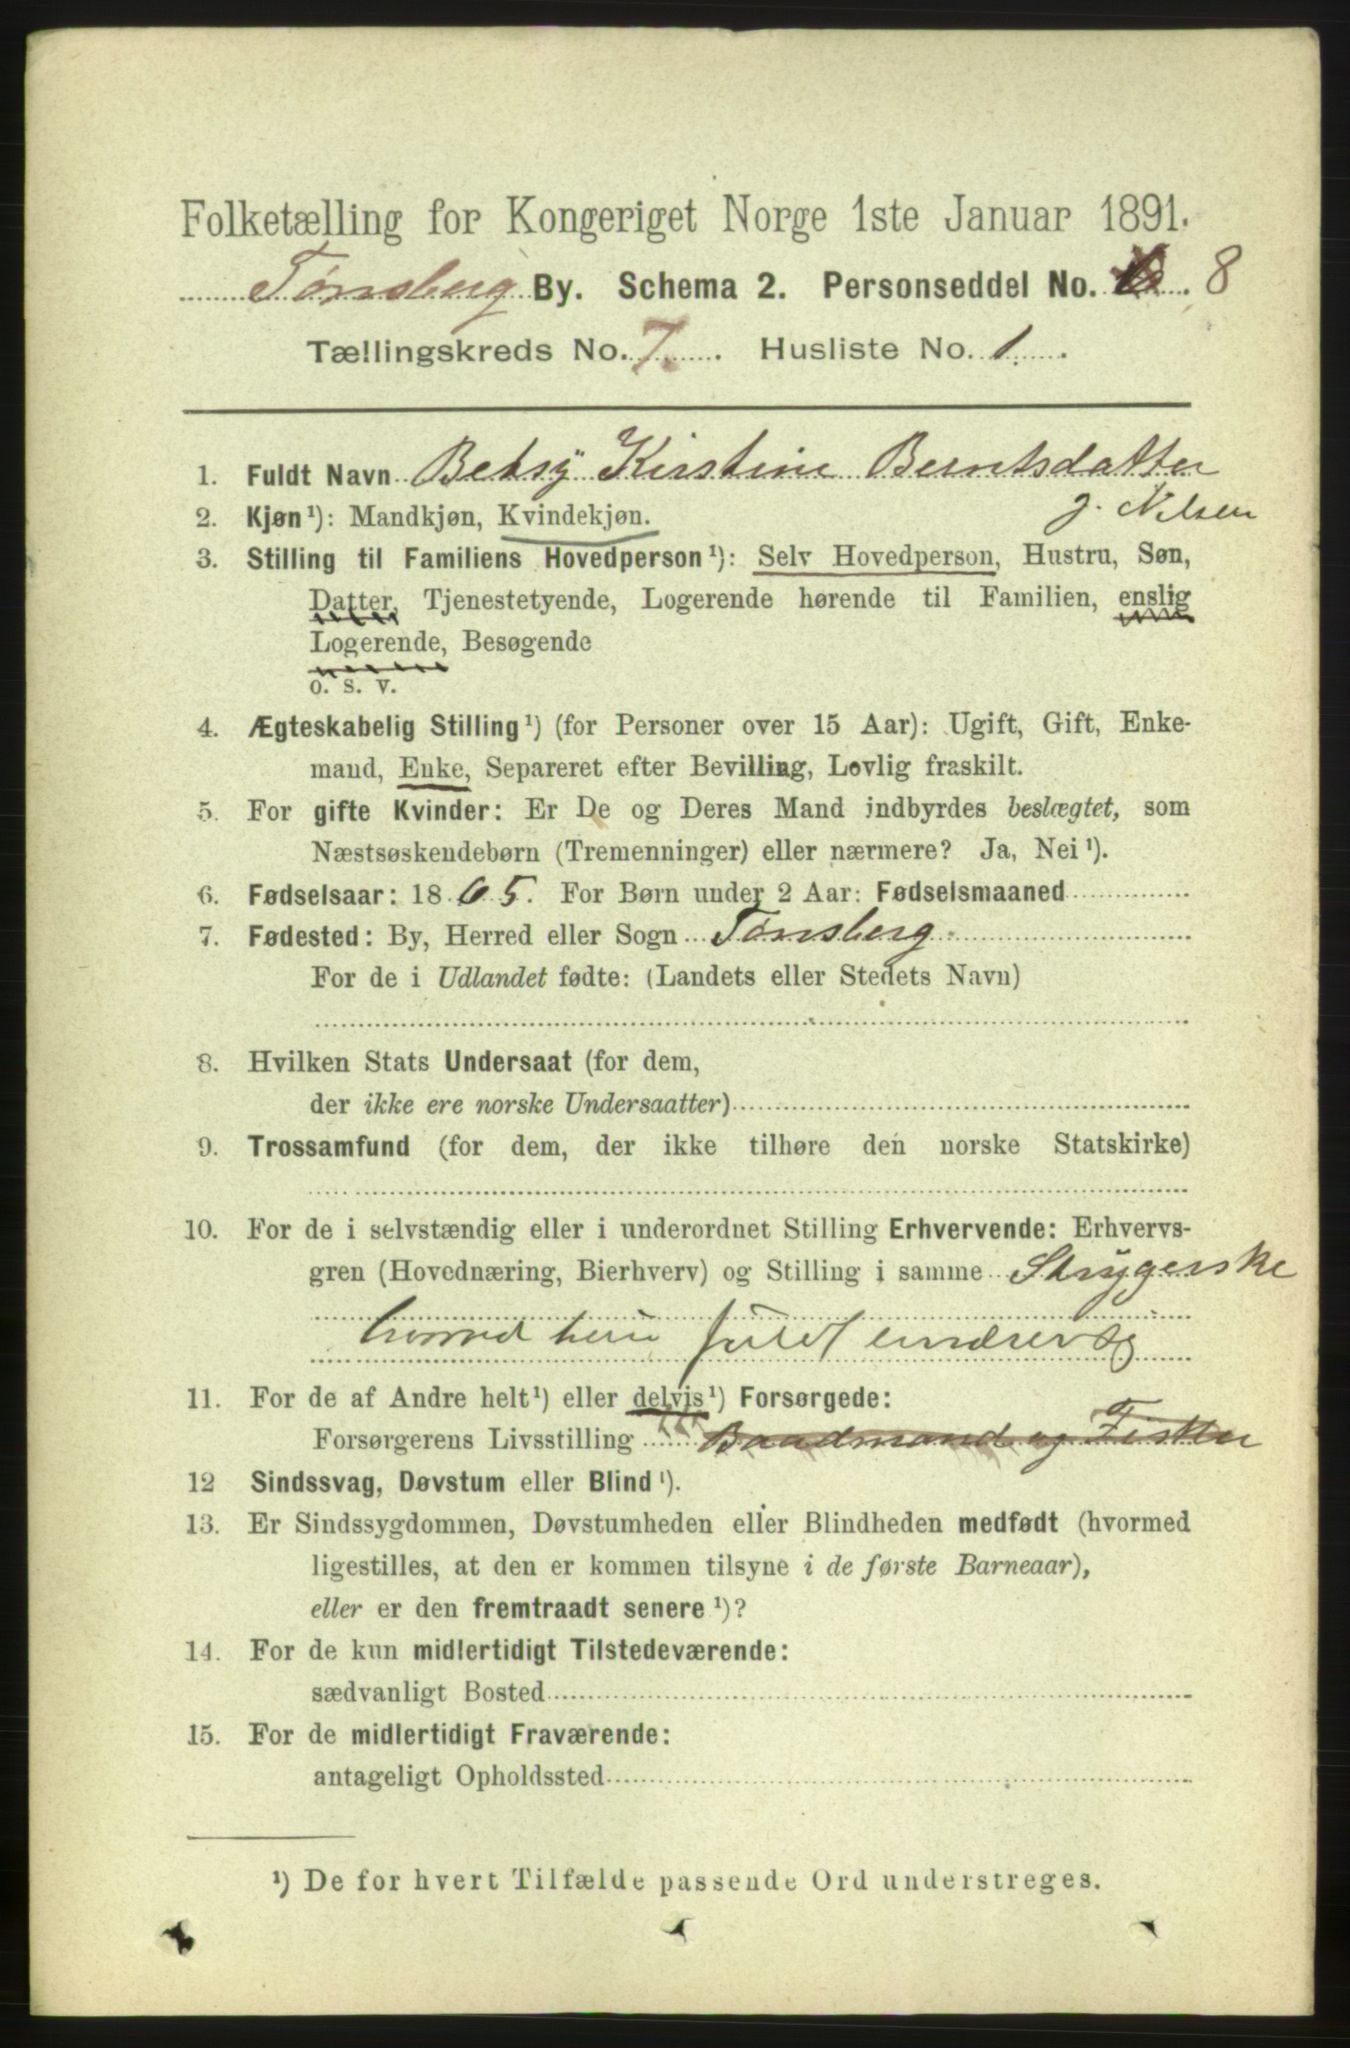 Folketælling for Kongeriget Norge 1ste Januar 1891.
Tønsberg By. Schema 2. Personseddel No. 8
Tællingskreds No. 7. Husliste No. 1.
1. Fuldt Navn Betsÿ Kirstine Berntsdatter
g. Nilsen
2. Kjøn¹): Mandkjøn, Kvindekjøn.
3. Stilling til Familiens Hovedperson¹): Selv Hovedperson, Hustru, Søn,
Datter, Tjenestetyende, Logerende hørende til Familien, enslig
Logerende, Besøgende
o. s. v.
4. Ægteskabelig Stilling¹) (for Personer over 15 Aar): Ugift, Gift, Enke-
mand, Enke, Separeret efter Bevilling, Lovlig fraskilt.
5. For gifte Kvinder: Er De og Deres Mand indbyrdes beslægtet, som
Næstsøskendebørn (Tremenninger) eller nærmere? Ja, Nei¹).
6. Fødselsaar: 1865. For Børn under 2 Aar: Fødselsmaaned
7. Fødested: By, Herred eller Sogn Tønsberg
For de i Udlandet fødte: (Landets eller Stedets Navn)
8. Hvilken Stats Undersaat (for dem,
der ikke ere norske Undersaatter)
9. Trossamfund (for dem, der ikke tilhøre den norske Statskirke)
10. For de i selvstændig eller i underordnet Stilling Erhvervende: Erhvervs-
gren (Hovednæring, Bierhverv) og Stilling i samme Strygerske
hvorved hun fuldt ernærer sig
11. For de af Andre helt¹) eller delvis¹) Forsørgede:
Forsørgerens Livsstilling Baadmand og Fisker
12 Sindssvag, Døvstum eller Blind¹).
13. Er Sindssygdommen, Døvstumheden eller Blindheden medfødt (hvormed
ligestilles, at den er kommen tilsyne i de første Barneaar),
eller er den fremtraadt senere¹)?
14. For de kun midlertidigt Tilstedeværende:
sædvanligt Bosted
15. For de midlertidigt Fraværende:
antageligt Opholdssted
¹) De for hvert Tilfælde passende Ord understreges.